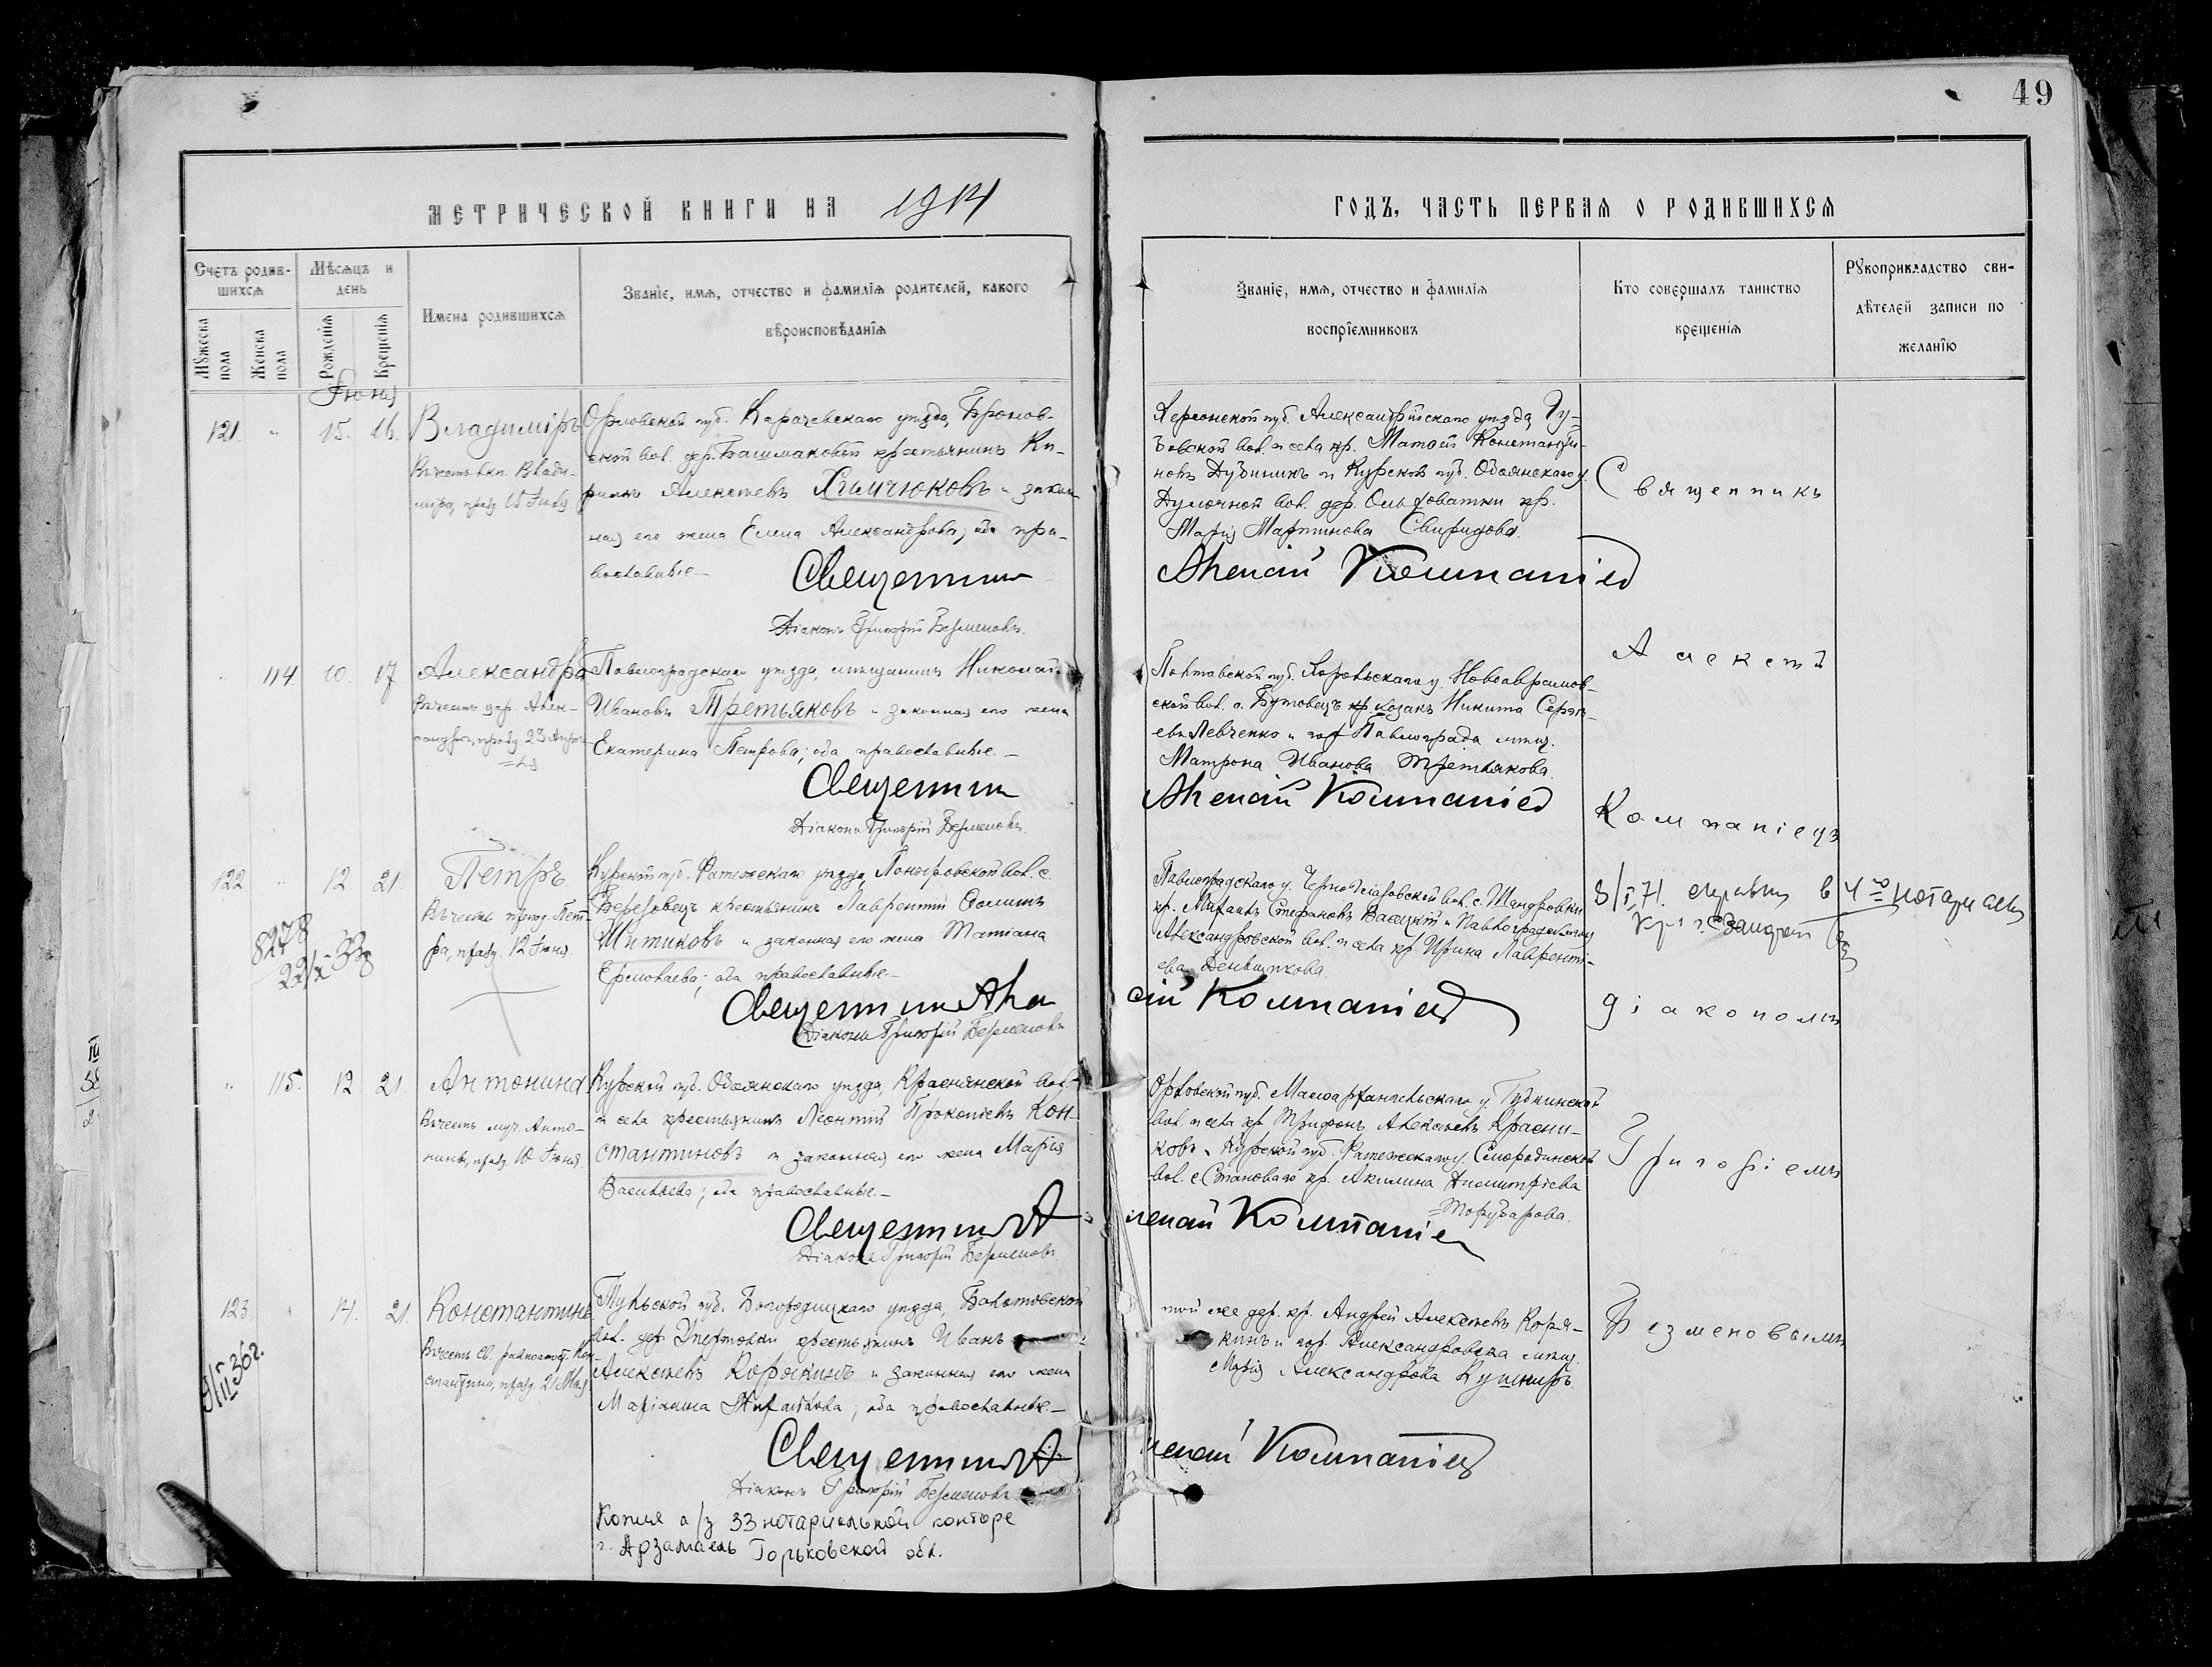 49
МЕТРИЧЕСКОЙ КНИГИ НА 1914
ГОДЪ, ЧАСТЬ ПЕРВАЯ О РОДИВШИХСЯ
Счетъ родив-
шихся
Мѣсяцъ и
день
Мужеска
пола
Женска
пола
Рожденія
Крещенія
Имена родившихся
Званіе, имя, отчество и фамилія родителей, какого
вѣроисповѣданія
Званіе, имя, отчество и фамилія
воспріемниковъ
Кто совершалъ таинство
крещенія
Рукоприкладство сви-
дѣтелей записи по
желанію
Іюня
121. " 15. 16. Владиміръ
Въ честь вкн. Влади-
міра, празд. 15 Іюля
Орловской губ. Карачевскаго уѣзда,
ской вол. дер. Башмаковой крестьянинъ Ки-
риллъ Алексѣевъ Химчюковъ и закон-
ная его жена Елена Александрова; оба пра-
вославные
Священник
Діаконъ Григорій Безменовъ.
Херсонской губ. Александрійскаго уѣзда,
вол. и села кр. Матѳей Константи-
новъ Дубиникъ и Курской губ. Обоянскаго у.
вол. дер. Ольховатки кр.
Марія Мартинова Свиридова.
Алексій Компаніец
" 114. 10. 17 Александра
Въ честь цар. Алек-
сандры, празд. 23 Апрѣ-
=ля
Павлоградскаго уѣзда, мѣщанинъ Николай
Ивановъ Третьяковъ и законная его жена
Екатерина Петрова; оба православные.
Священник
Діаконъ Григорій Безменовъ
Полтавской губ. Хорольскаго у. Новоаврамов-
ской вол. с. Бутовецъ козакъ Никита Сергѣ-
евъ Левченко и гор. Павлограда мѣщ.
Матрона Иванова Третьякова.
Алексій Компаніец
122. " 12. 21. Петръ
Въ честь препод. Пет-
ра, празд. 12 Іюня.
8278
Курской губ. Фатежскаго уѣзда, Поныровской вол. с.
Березовецъ крестьянинъ Лаврентій
Шитиковъ и законная его жена Татіана
Ермолаева; оба православные
Священник Але
Діаконъ Григорій Безменовъ
Павлоградскаго у. вол. с. Шандровки
кр. Стефановъ и Павлоградскаго у.
Александровской вол. и села кр. Ирина Лавренті-
ева Деньщикова
сій Компаніец
" 115. 12 21. Антонина
Въ честь муч. Анто-
нины, празд. 10 Іюня.
Курской губ. Обоянскаго уѣзда, Краснянской вол.
и села крестьянинъ Леонтій Прокопіевъ Кон-
стантиновъ и законная его жена Марія
Васильева; оба православные
Священник А
Діаконъ Григорій Безменовъ
Орловской губ. Малоархангельскаго у. Губкинской
вол. и села кр. Трифонъ Алексѣевъ Красни-
ковъ и Курской губ. Фатежскаго у. Смородинской
вол. с. Становаго кр. Акилина Димитріева
=
лексій Компаніец
123. " 14. 21. Константинъ
Въ честь св. равноапост. Кон-
стантина, празд. 21 Мая
Тульской губ. Богородицкаго уѣзда, Балотовской
вол. дер. крестьянинъ Иванъ
Алексѣевъ Корякинъ и законная его жена
Маріанна; оба православные
Священник А
Діаконъ Григорій Безменовъ
той же дер. кр. Андрей Алексѣевъ Коря-
кинъ и гор. Александровска мѣщ.
Марія Александрова Кушниръ
лексій Компаніец
Копия а/з 33 нотариальной конторе
г. Арзамась Горьковской обл.
Священникъ
Алексѣй
Компаніецъ
діакономъ
Григоріемъ
Безменовымъ